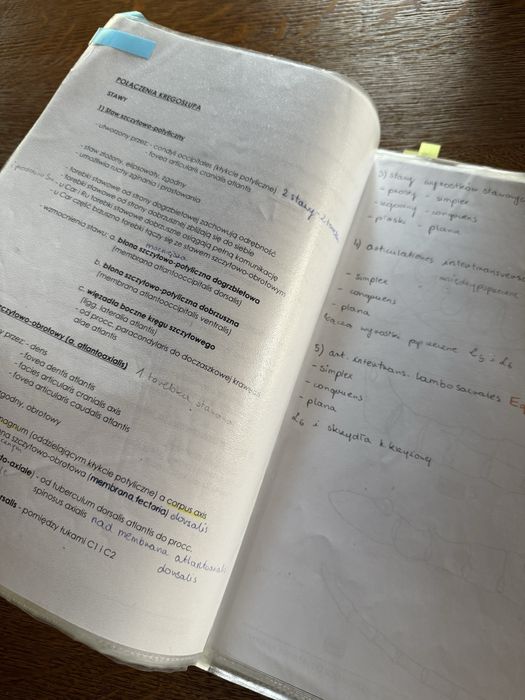 POŁĄCZENIA KRĘGOSŁUPA
STAWY
1) Staw szczytowo-potyliczny
- utworzony przez: - condyli occipitales (kłykcie potyliczne)
- fovea articularis cranialis atlantis
2 stawy - 2
- staw złożony, elipsowaty, zgodny
- umożliwia ruchy zginania i prostowania
- torebki stawowe od strony dogrzbietowej zachowują odrębność
- torebki stawowe od strony dobrzusznej zbliżają się do siebie
- u Car i Ru torebki stawowe dobrzuszne osiągają pełną komunikację
- u Car część brzuszna torebki łączy się ze stawem szczytowo-obrotowym
- wzmocnienia stawu: a. błona szczytowo-potyliczna dogrzbietowa
mocniejsza
(membrana atlantooccipitalis dorsalis)
b. błona szczytowo-potyliczna dobrzuszna
(membrana atlantooccipitalis ventralis)
c. więzadła boczne kręgu szczytowego
(ligg. lateralia atlantis)
- od procc. paracondylaris do doczaszkowej krawędzi
alae atlantis
szczytowo-obrotowy (a. atlantoaxialis)
1 torebka stawowa
przez: - dens
- fovea dentis atlantis
- facies articularis cranialis axis
- fovea articularis caudalis atlantis
zgodny, obrotowy
magnum (oddzielającym kłykcie potyliczne) a corpus axis
szczytowo-obrotowa (membrana tectoria) dorsalis
to-axiale) - od tuberculum dorsalis atlantis do procc.
spinosus axialis
nad membrana
dorsalis
rsalis - pomiędzy łukami C1 i C2
3) stawy wyrostków stawowych
- prosty - simplex
- zgodny - congruens
- płaski - plana
4) articulationes intertransversa
międzypoprzeczne
- simplex
- congruens
- plana
łączą wyrostki poprzeczne L5 i L6
5) art. intertrans. lumbosacrales
- simplex
- congruens
- plana
L6 i skrzydła k. krzyżowej